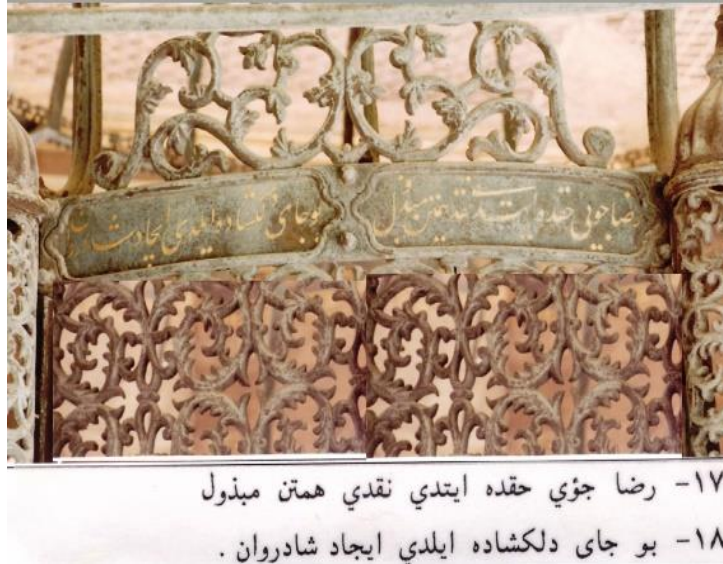 رضا جوئي حقده ايتدي نقدي همتن مبذول
بو جاى دلكشاده ايلدي ايجاد شادروان
١٧- رضا جؤي حقده ايتدي نقدي همتن مبذول
١٨- بو جاي دلكشاده ايلدي ايجاد شادروان .